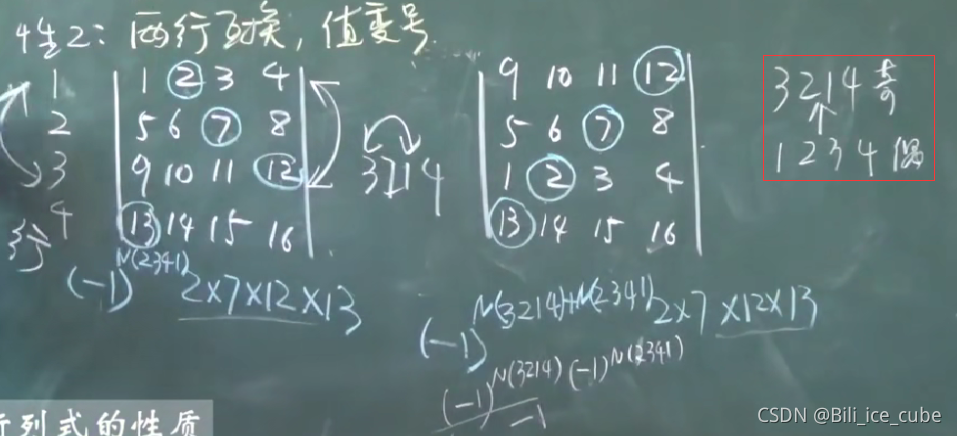 性2：两行互换，值变号.
1
2
3
4
行
1 2 3 4
5 6 7 8
9 10 11 12
13 14 15 16
3214
9 10 11 12
5 6 7 8
1 2 3 4
13 14 15 16
3214 奇
↑
1234 偶
(-1)^N(2341) 2×7×12×13
(-1)^N(3214)+N(2341) 2×7×12×13
(-1)^N(3214) (-1)^N(2341)
-1
行列式的性质
CSDN @Bili_ice_cube